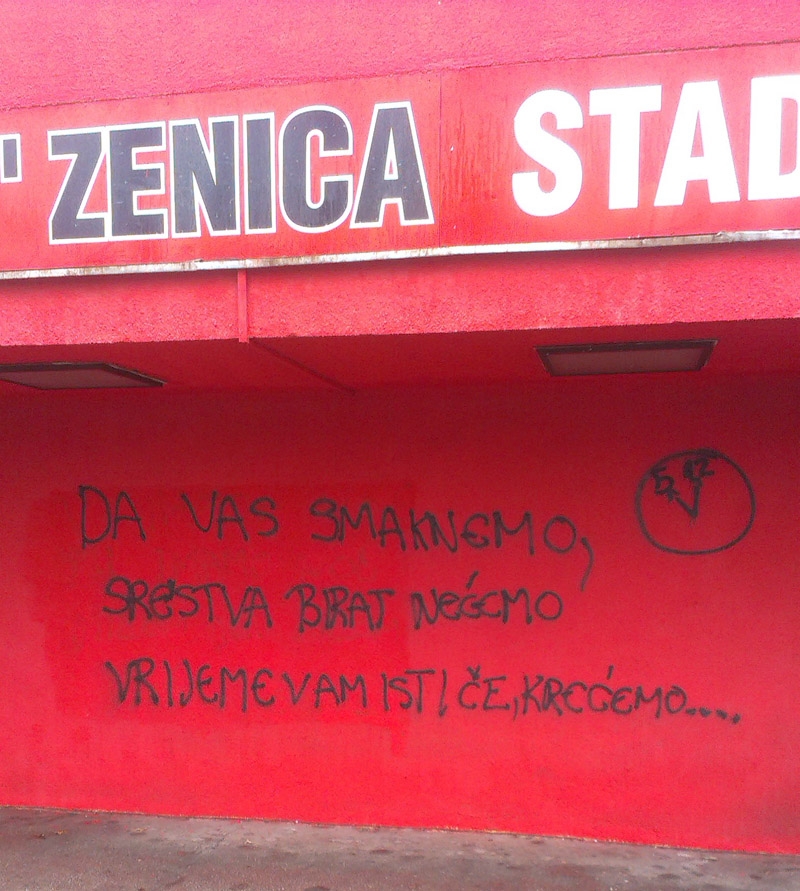 ' ZENICA STAD
DA VAS SMAKNEMO,
SRESTVA BIRAT NEĆEMO
VRIJEME VAM ISTIČE, KREĆEMO....
5 12